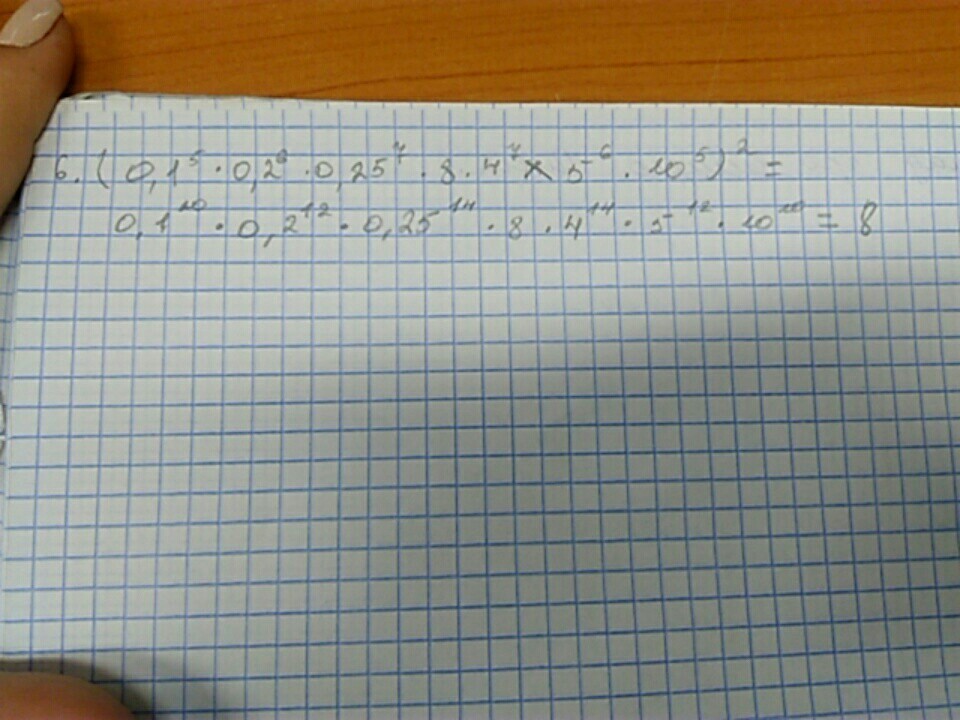 6. (0,1⁵ · 0,2⁶ · 0,25⁷ · 8 · 4⁷ × 5⁶ · 10⁵)² =
0,1¹⁰ · 0,2¹² · 0,25¹⁴ · 8 · 4¹⁴ · 5¹² · 10¹⁰ = 8